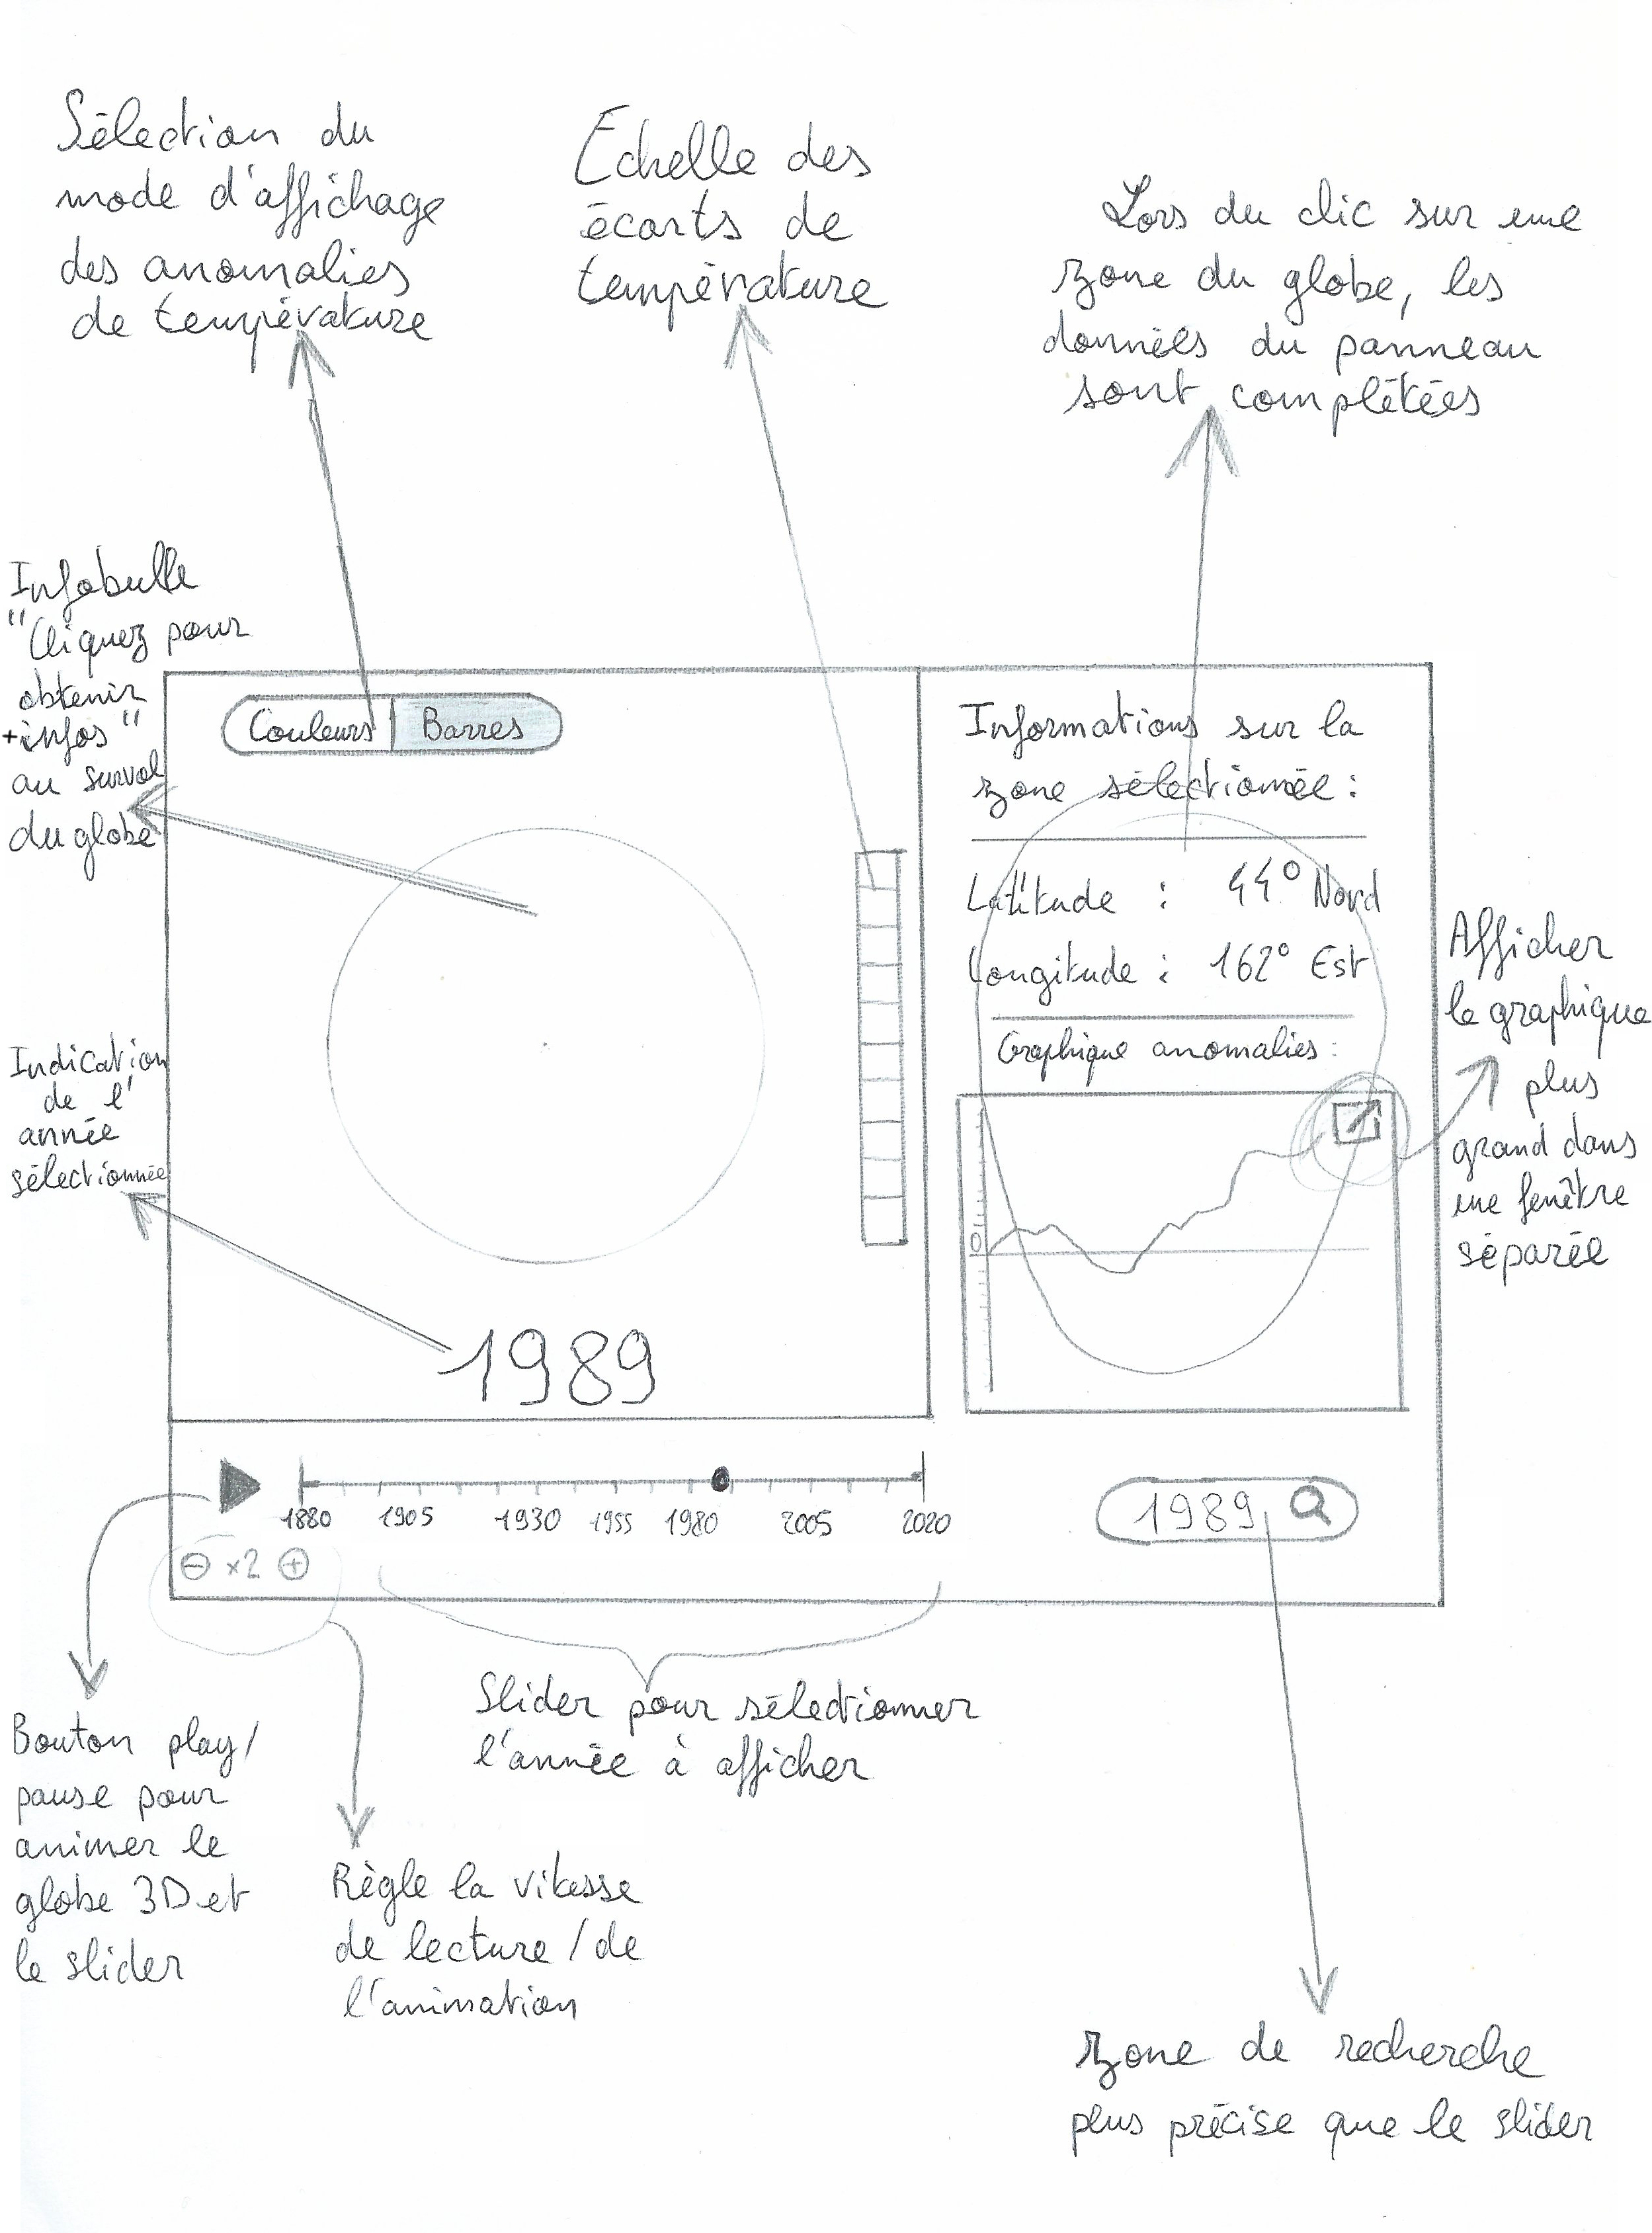 Sélection du
mode d'affichage
des anomalies
de température
Echelle des
écarts de
température
Lors du clic sur une
zone du globe, les
données du panneau
sont complétées
Infobulle
"Cliquez pour
obtenir
+infos"
au survol
du globe
Couleurs
Barres
Indication
de l'
année
sélectionnée
1989
Informations sur la
zone sélectionnée :
Latitude : 44° Nord
Longitude : 162° Est
Graphique anomalies :
0
Afficher
le graphique
plus
grand dans
une fenêtre
séparée
1880 1905 1930 1955 1980 2005 2020
x2
1989
Bouton play/
pause pour
animer le
globe 3D et
le slider
Règle la vitesse
de lecture / de
l'animation
Slider pour sélectionner
l'année à afficher
zone de recherche
plus précise que le slider